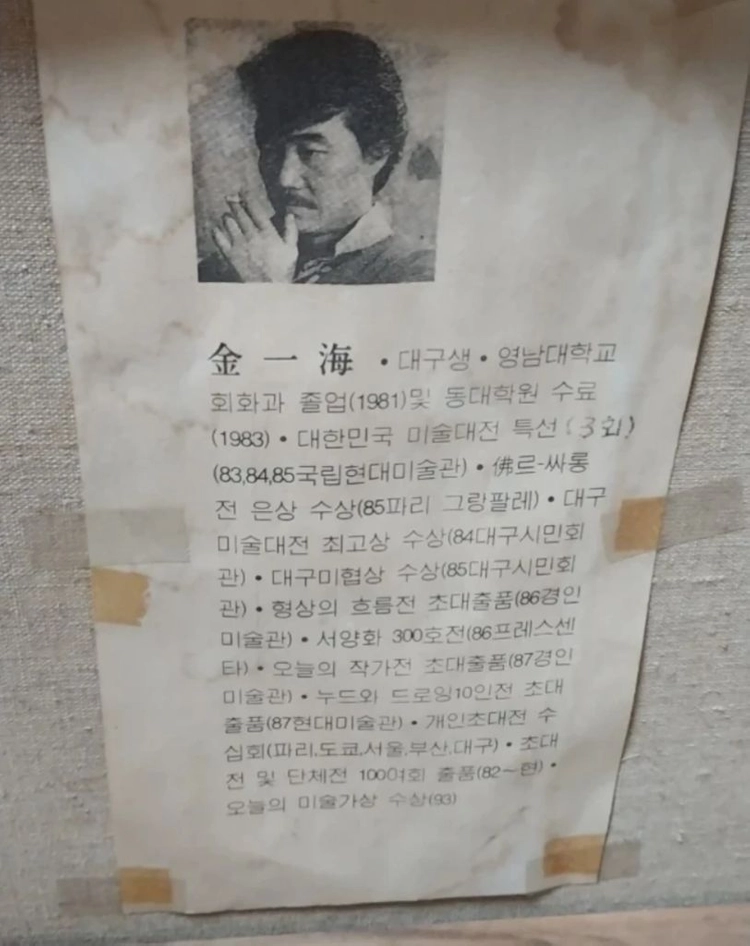 金 一 海 • 대구생 • 영남대학교
회화과 졸업(1981)및 동대학원 수료
(1983) • 대한민국 미술대전 특선(3회)
(83,84,85국립현대미술관) • 佛르-싸롱
전 은상 수상(85파리 그랑팔레) • 대구
미술대전 최고상 수상(84대구시민회
관) • 대구미협상 수상(85대구시민회
관) • 형상의 흐름전 초대출품(86경인
미술관) • 서양화 300호전(86프레스센
타) • 오늘의 작가전 초대출품(87경인
미술관) • 누드와 드로잉10인전 초대
출품(87현대미술관) • 개인초대전 수
십회(파리,도쿄,서울,부산,대구) • 초대
전 및 단체전 100여회 출품(82~현) •
오늘의 미술가상 수상(93)